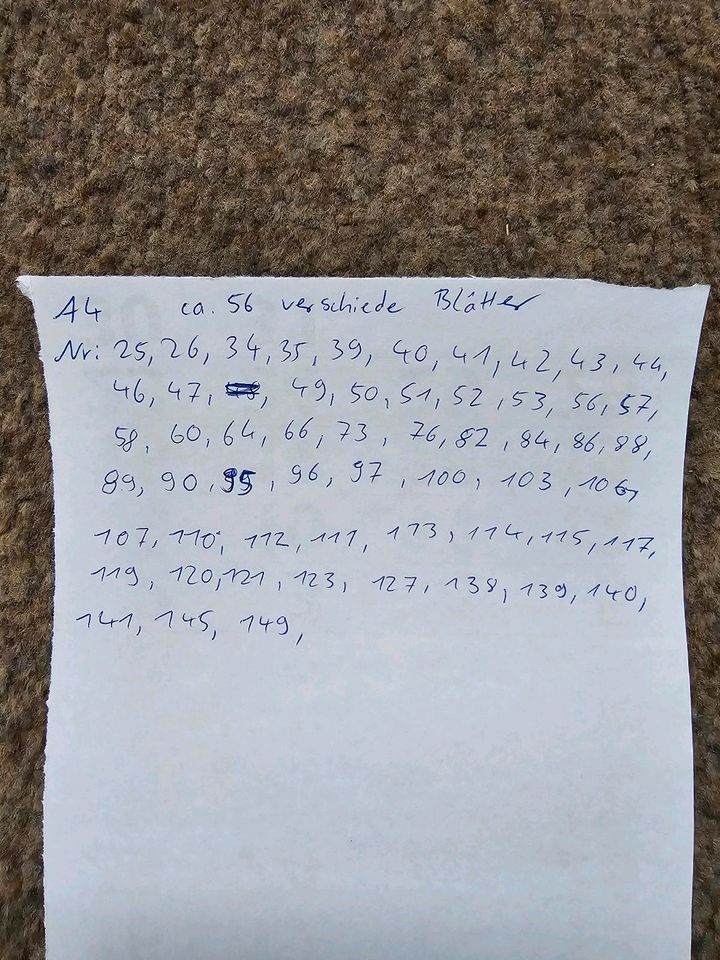 A4 ca. 56 verschiede Blätter
Nr: 25, 26, 34, 35, 39, 40, 41, 42, 43, 44,
46, 47, 49, 50, 51, 52, 53, 56, 57,
58, 60, 64, 66, 73, 76, 82, 84, 86, 88,
89, 90, 95, 96, 97, 100, 103, 106,
107, 110, 112, 111, 113, 114, 115, 117,
119, 120, 121, 123, 127, 138, 139, 140,
141, 145, 149,